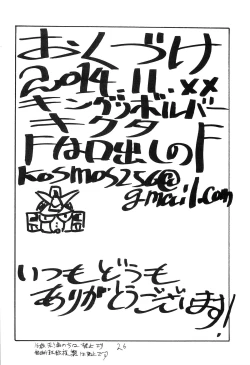 おくづけ
2014.11.xx
キングリボルバー
キクタ
Fは口出しのF
kosmos256@
gmail.com
いつもどうも
ありがとうございます!
26